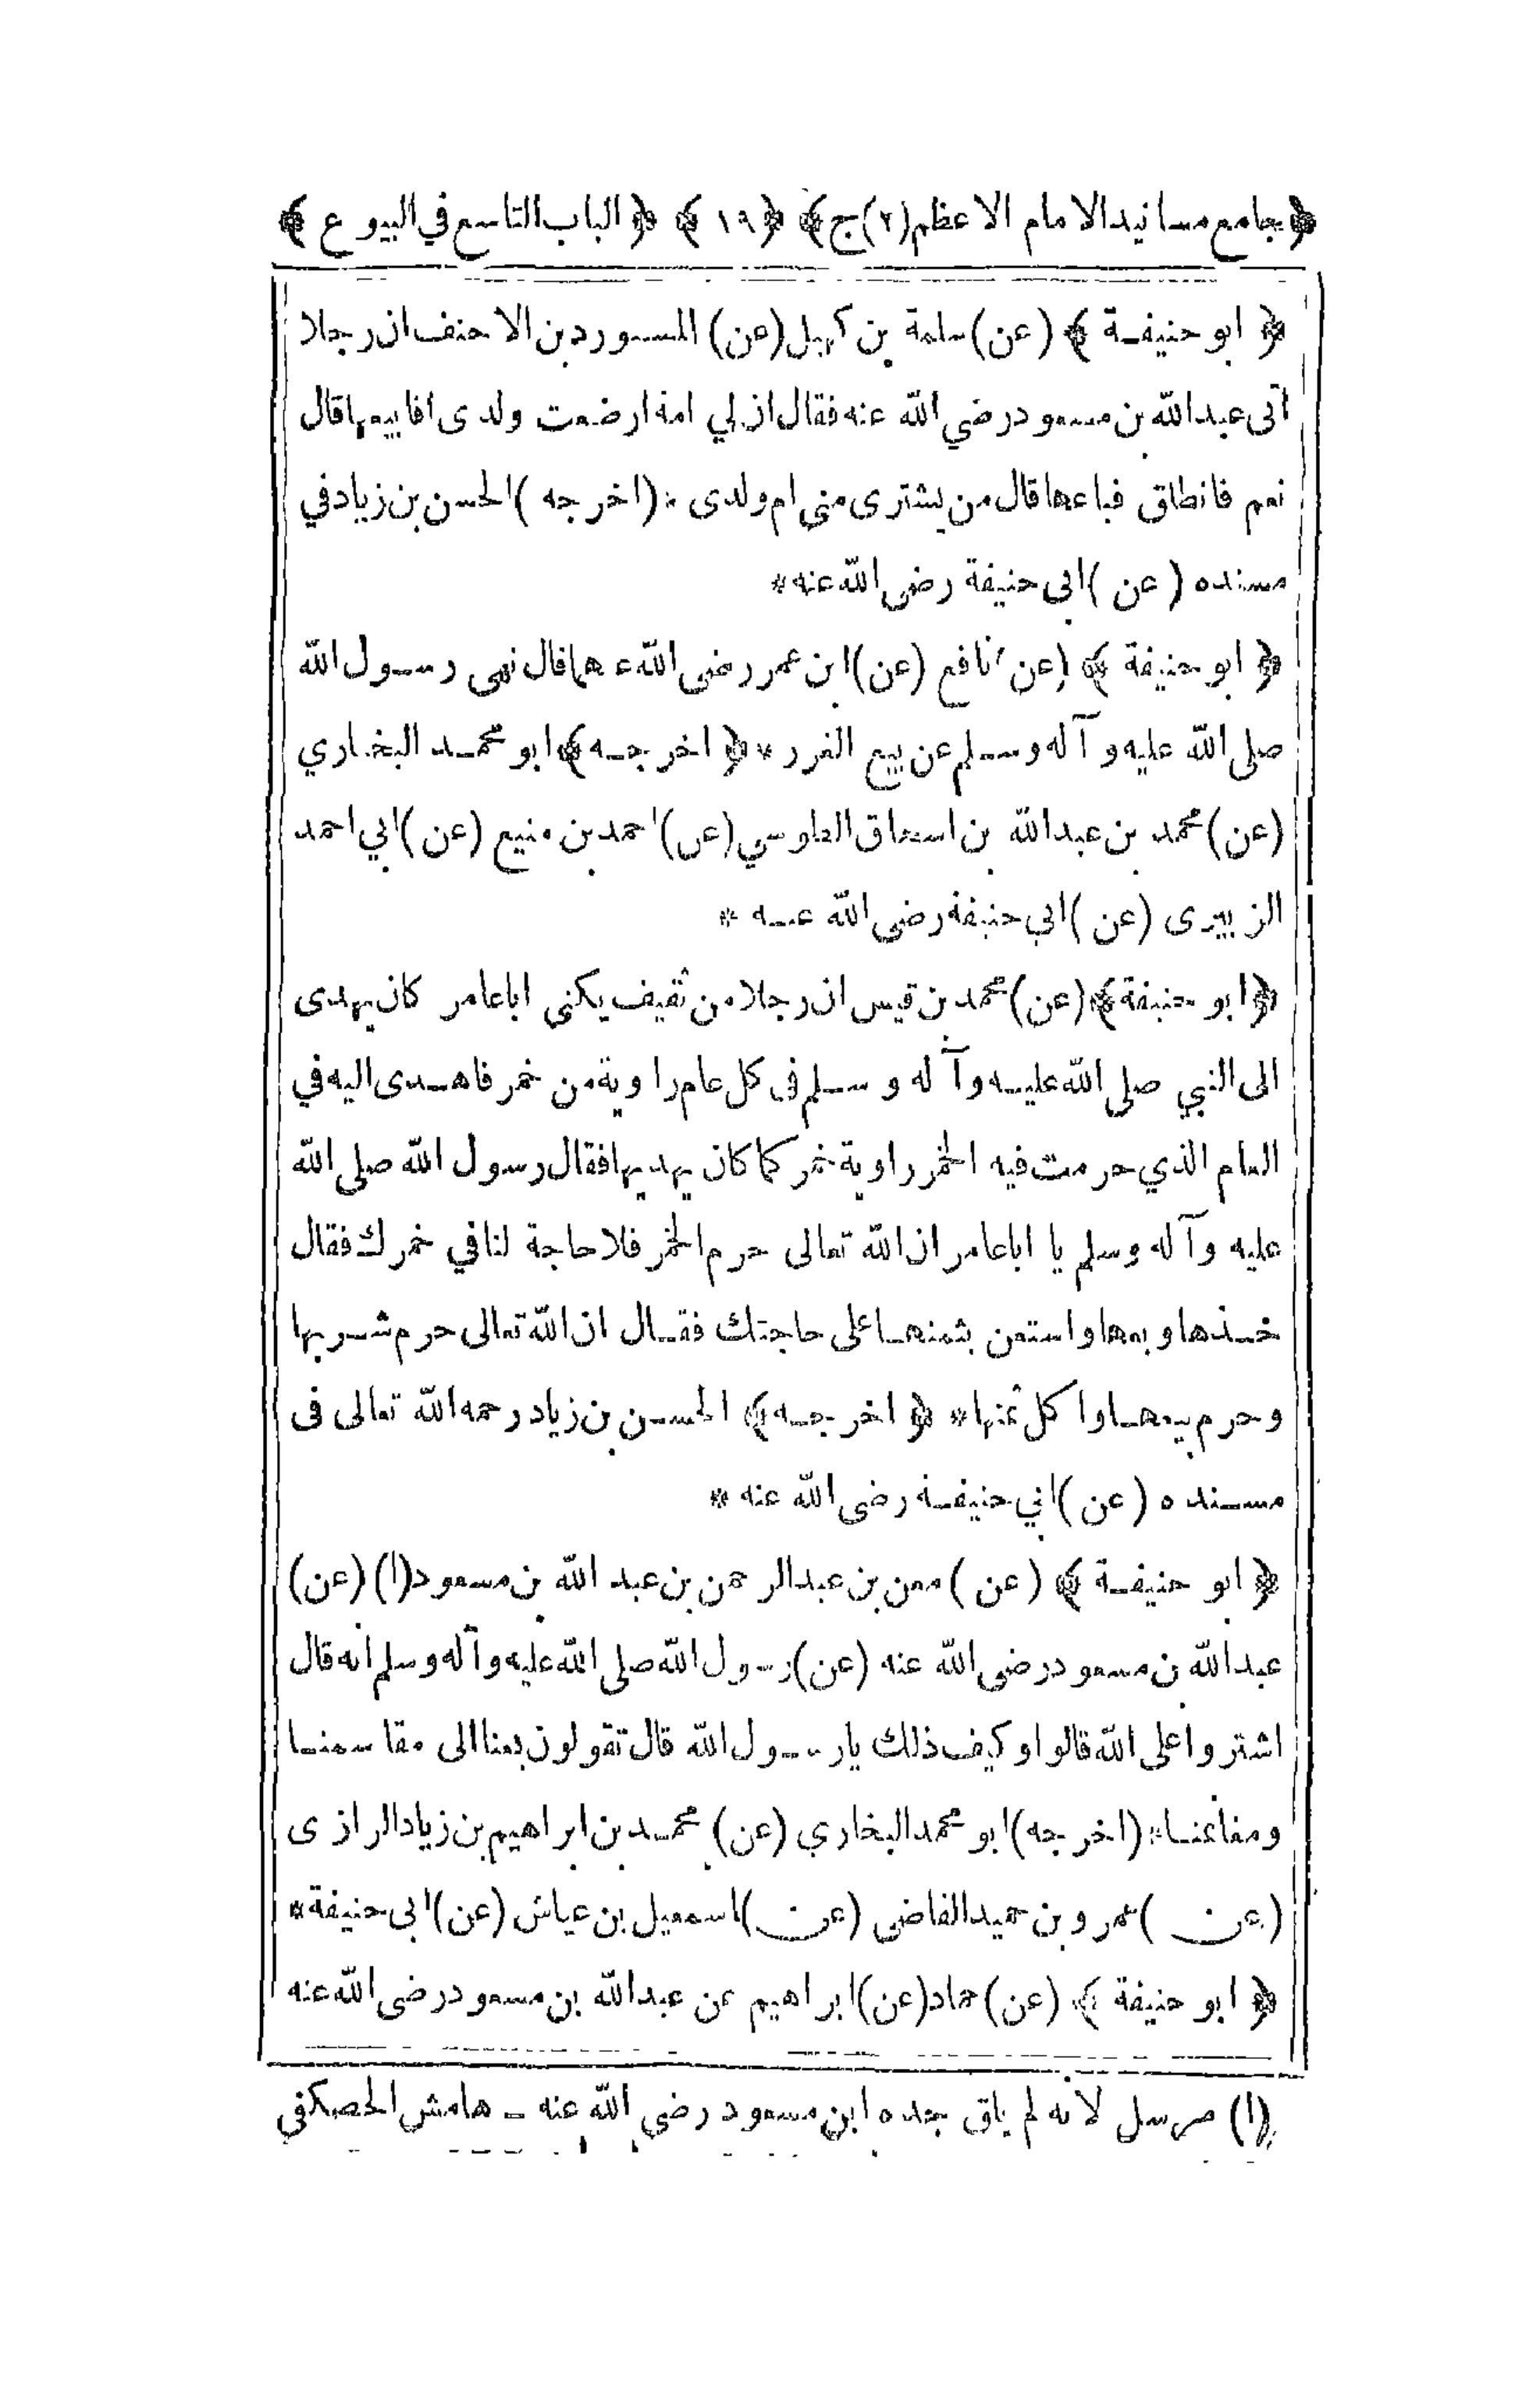 ﴿جامع مسانيد الامام الاعظم(٢)ج﴾ ﴿١٩﴾ ﴿الباب التاسع في البيوع﴾
﴿ ابو حنيفة ﴾ (عن) سلمة بن كهيل (عن) المسور دبن الاحنف ان رجلا
اتى عبدالله بن مسعود رضي الله عنه فقال ان لي امة ارضعت ولدى افابيعها قال
نعم فانطلق فباعها قال من يشترى منى ام ولدى * (اخرجه) الحسن بن زياد في
مسنده (عن) ابى حنيفة رضى الله عنه *
﴿ ابو حنيفة ﴾ (عن) نافع (عن) ابن عمر رضى الله عنهما قال نهى رسول الله
صلى الله عليه وآله وسلم عن بيع الغرر * ﴿ اخرجه ﴾ ابو محمد البخاري
(عن) محمد بن عبدالله بن اسحاق الطوسي (عن) احمد بن منيع (عن) ابي احمد
الزبيرى (عن) ابي حنيفة رضى الله عنه *
﴿ ابو حنيفة ﴾ (عن) محمد بن قيس ان رجلا من ثقيف يكنى اباعامر كان يهدى
الى النبي صلى الله عليه وآله وسلم فى كل عام راوية من خمر فاهدى اليه في
العام الذي حرمت فيه الخمر راوية خمر كما كان يهديها فقال رسول الله صلى الله
عليه وآله وسلم يا اباعامر ان الله تعالى حرم الخمر فلا حاجة لنا في خمرك فقال
خذها وبعها واستعن بثمنها على حاجتك فقال ان الله تعالى حرم شربها
وحرم بيعها واكل ثمنها * ﴿ اخرجه ﴾ الحسن بن زياد رحمه الله تعالى فى
مسنده (عن) ابي حنيفة رضى الله عنه *
﴿ ابو حنيفة ﴾ (عن) معن بن عبدالرحمن بن عبد الله بن مسعود(١) (عن)
عبدالله بن مسعود رضى الله عنه (عن) رسول الله صلى الله عليه وآله وسلم انه قال
اشتروا على الله قالوا وكيف ذلك يارسول الله قال تقولون بعنا الى مقاسمنا
ومغانمنا * (اخرجه) ابو محمد البخاري (عن) محمد بن ابراهيم بن زياد الرازى
(عن) عمرو بن حميد القاضى (عن) اسمعيل بن عياش (عن) ابى حنيفة *
﴿ ابو حنيفة ﴾ (عن) حماد (عن) ابراهيم عن عبدالله بن مسعود رضى الله عنه
(١) مرسل لانه لم يلق جده ابن مسعود رضى الله عنه ـ هامش الحصكفي